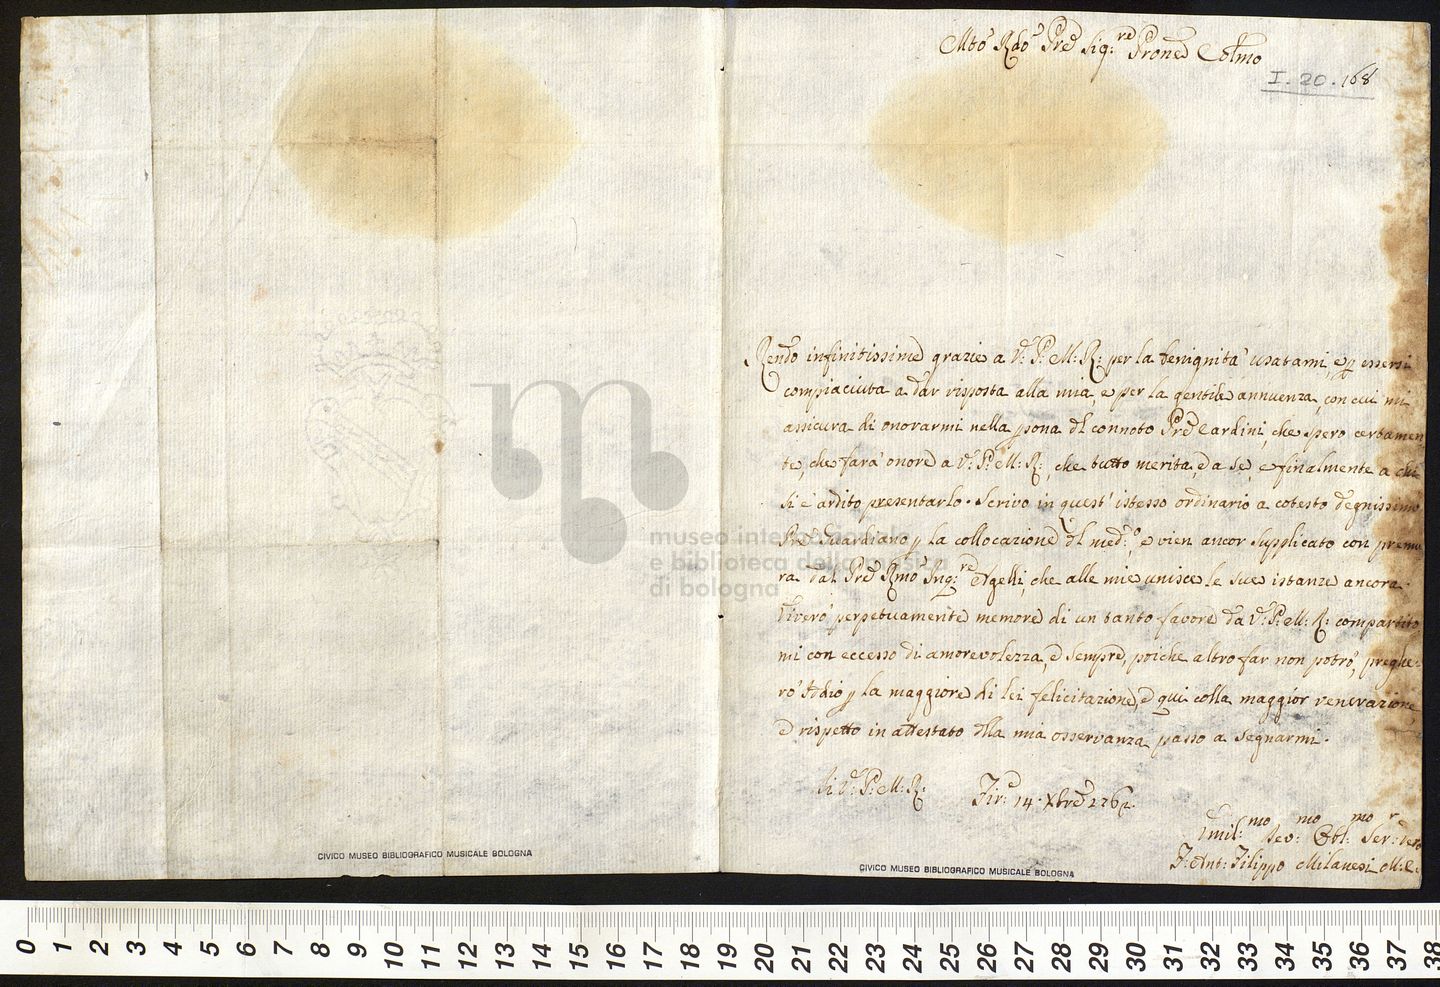 Mto Rdo Pre Sigre Prone Colmo
I. 20. 168
Rendo infinitissime grazie a V: P: M: R: per la benignità usatami, e p essersi
compiaciuta a dar risposta alla mia, e per la gentile annuenza, con cui mi
assicura di onorarmi nella psona dl connoto Pre Cardini, che spero certamen
te, che farà onore a V: P: M: R:, che tutto merita, e a se, e finalmente a chi
si è ardito presentarlo. Scrivo in quest' istesso ordinario a cotesto degnissimo
Pre Guardiano p la collocazione dl med:o, e vien ancor supplicato con premu
ra dal Pre Rmo Inq:re Agelli, che alle mie unisce le sue istanze ancora.
Viverò perpetuamente memore di un tanto favore da V: P: M: R: compartito
mi con eccesso di amorevolezza, e sempre, poiche altro far non potrò, preghe:
rò Iddio p la maggiore di lei felicitazione, e qui colla maggior venerazione,
e rispetto in attestato dlla mia osservanza passo a segnarmi.
Di V: P: M: R:
Fir: 14. Xbre 1762.
Umil:mo Dev:mo Obl:mo Ser:r vero
F: Ant: Filippo Milanesi M: C:
CIVICO MUSEO BIBLIOGRAFICO MUSICALE BOLOGNA
CIVICO MUSEO BIBLIOGRAFICO MUSICALE BOLOGNA
museo internazionale
e biblioteca della musica
di bologna
0 1 2 3 4 5 6 7 8 9 10 11 12 13 14 15 16 17 18 19 20 21 22 23 24 25 26 27 28 29 30 31 32 33 34 35 36 37 38